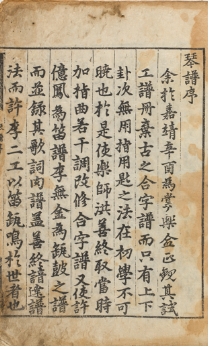 琴譜序
余於嘉靖辛酉爲掌樂金正觀其試
工譜冊棄古之合字譜而只有上下
卦次無用指用匙之法在初學不可
曉也於是使樂師洪善終取當時
加指曲若干調改修合字譜又使許
億鳳爲笛譜李無金爲缶鼓之譜
而並録其歌詞肉譜蓋善終諳遠譜
法而許李二工以笛缶鳴於世者也